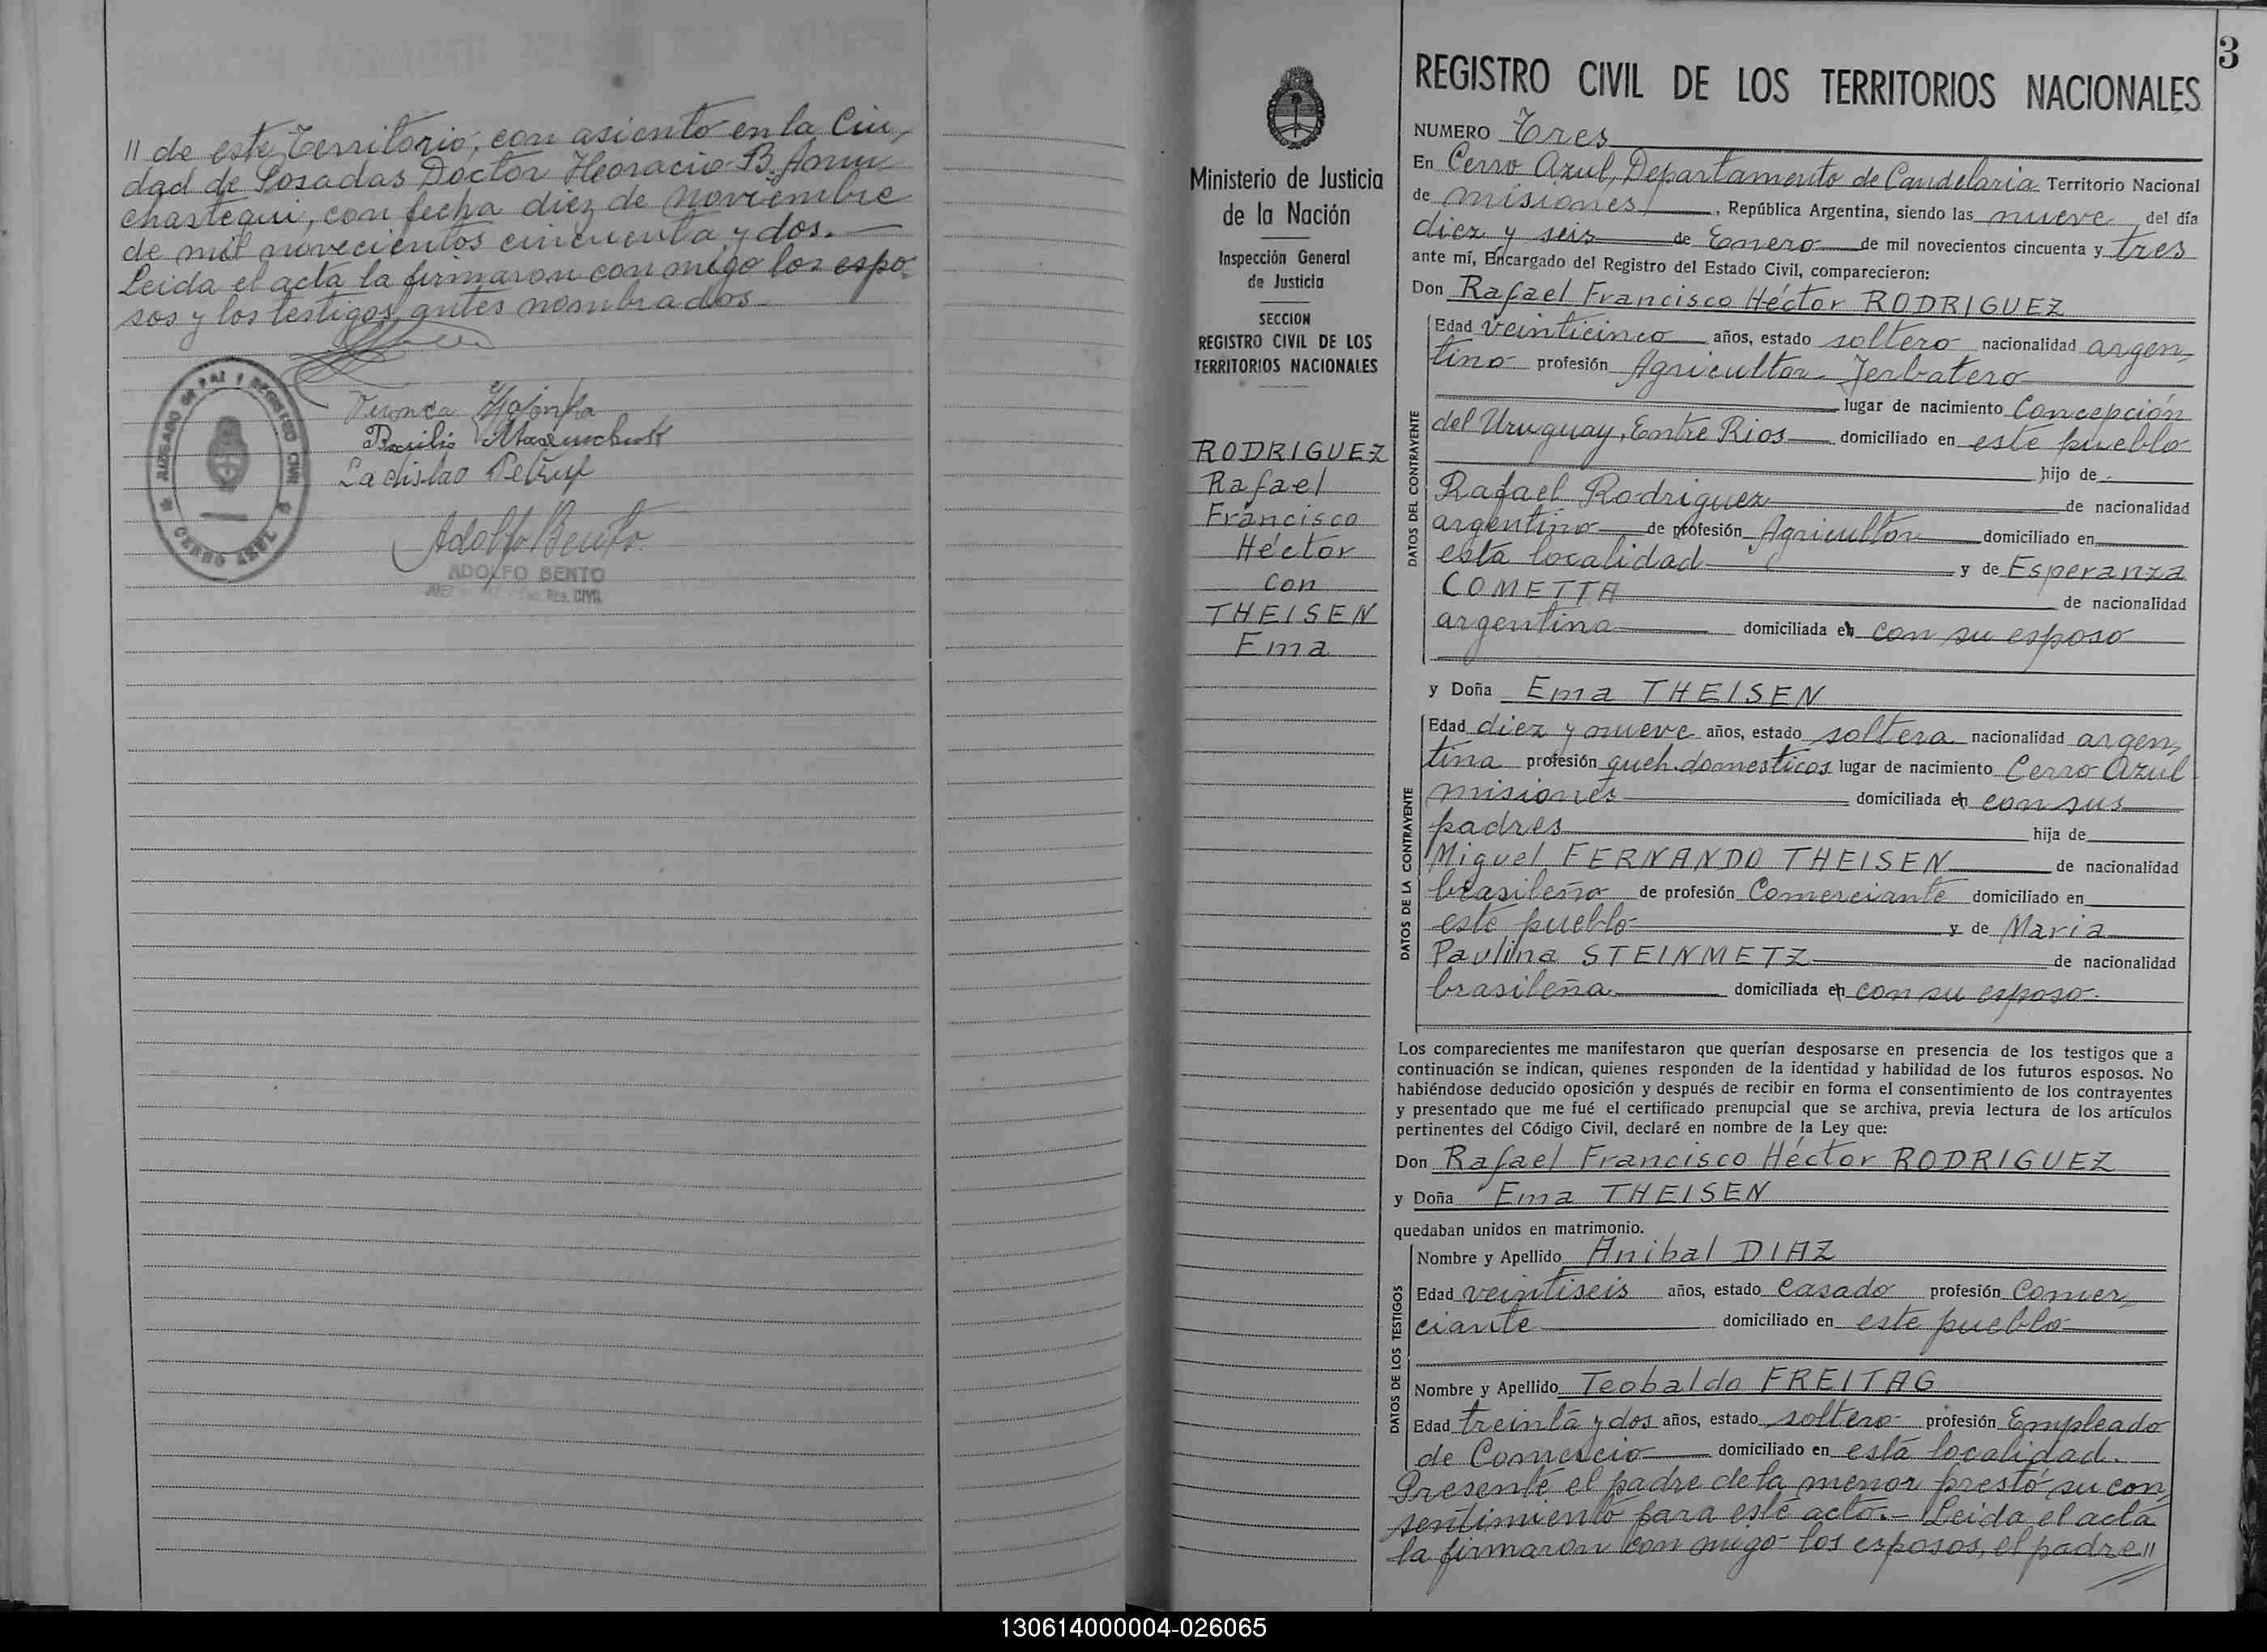 // de este Territorio, con asiento en la Ciu,
dad de Posadas Doctor Horacio B. Amu
chastegui, con fecha diez de Noviembre
de mil novecientos cincuenta y dos.—
Leida el acta la firmaron con migo los espo=
sos y los testigos antes nombrados.
JUZGADO DE PAZ Y REGISTRO CIVIL
CERRO AZUL
Basilio
Ladislao
Adolfo Bento
ADOLFO BENTO
JUEZ DE PAZ Y ENC. REG. CIVIL
3
Ministerio de Justicia
de la Nación
Inspección General
de Justicia
SECCION
REGISTRO CIVIL DE LOS
TERRITORIOS NACIONALES
RODRIGUEZ
Rafael
Francisco
Héctor
con
THEISEN
Ema
REGISTRO CIVIL DE LOS TERRITORIOS NACIONALES
NUMERO Tres
En Cerro Azul, Departamento de Candelaria Territorio Nacional
de Misiones, República Argentina, siendo las nueve del día
diez y seis de Enero de mil novecientos cincuenta y tres
ante mí, Encargado del Registro del Estado Civil, comparecieron:
Don Rafael Francisco Héctor RODRIGUEZ
DATOS DEL CONTRAYENTE
Edad veinticinco años, estado soltero nacionalidad argen,
tino profesión Agricultor Yerbatero
lugar de nacimiento Concepción
del Uruguay, Entre Rios domiciliado en este pueblo
hijo de
Rafael Rodriguez de nacionalidad
argentino de profesión Agricultor domiciliado en
esta localidad y de Esperanza
COMETTA de nacionalidad
argentina domiciliada en con su esposo
y Doña Ema THEISEN
DATOS DE LA CONTRAYENTE
Edad diez y nueve años, estado soltera nacionalidad argen,
tina profesión queh. domesticos lugar de nacimiento Cerro Azul
misiones domiciliada en con sus
padres hija de
Miguel FERNANDO THEISEN de nacionalidad
brasileño de profesión Comerciante domiciliado en
este pueblo y de Maria
Paulina STEINMETZ de nacionalidad
brasileña domiciliada en con su esposo.
Los comparecientes me manifestaron que querían desposarse en presencia de los testigos que a
continuación se indican, quienes responden de la identidad y habilidad de los futuros esposos. No
habiéndose deducido oposición y después de recibir en forma el consentimiento de los contrayentes
y presentado que me fué el certificado prenupcial que se archiva, previa lectura de los artículos
pertinentes del Código Civil, declaré en nombre de la Ley que:
Don Rafael Francisco Héctor RODRIGUEZ
y Doña Ema THEISEN
quedaban unidos en matrimonio.
DATOS DE LOS TESTIGOS
Nombre y Apellido Anibal DIAZ
Edad veintiseis años, estado casado profesión Comer,
ciante domiciliado en este pueblo
Nombre y Apellido Teobaldo FREITAG
Edad treinta y dos años, estado soltero profesión Empleado
de Comercio domiciliado en esta localidad.
Presente el padre de la menor prestó su con,
sentimiento para este acto.— Leida el acta
la firmaron con migo los esposos, el padre //
130614000004-026065